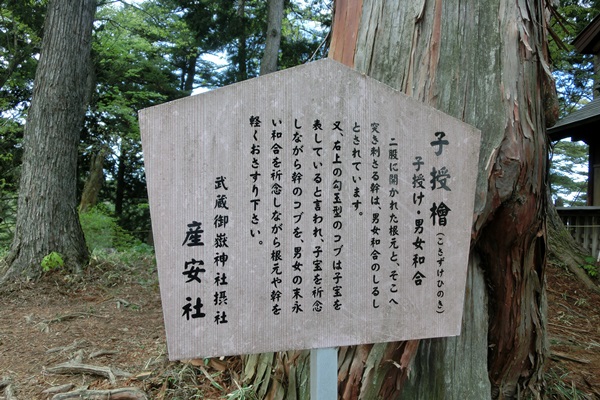 子授檜(こさずけひのき)
子授け・男女和合
二股に開かれた根元と、そこへ
突き刺さる幹は、男女和合のしるし
とされています。
又、右上の勾玉型のコブは子宝を
表していると言われ、子宝を祈念
しながら幹のコブを、男女の末永
い和合を祈念しながら根元や幹を
軽くおさすり下さい。
武蔵御嶽神社摂社
産安社